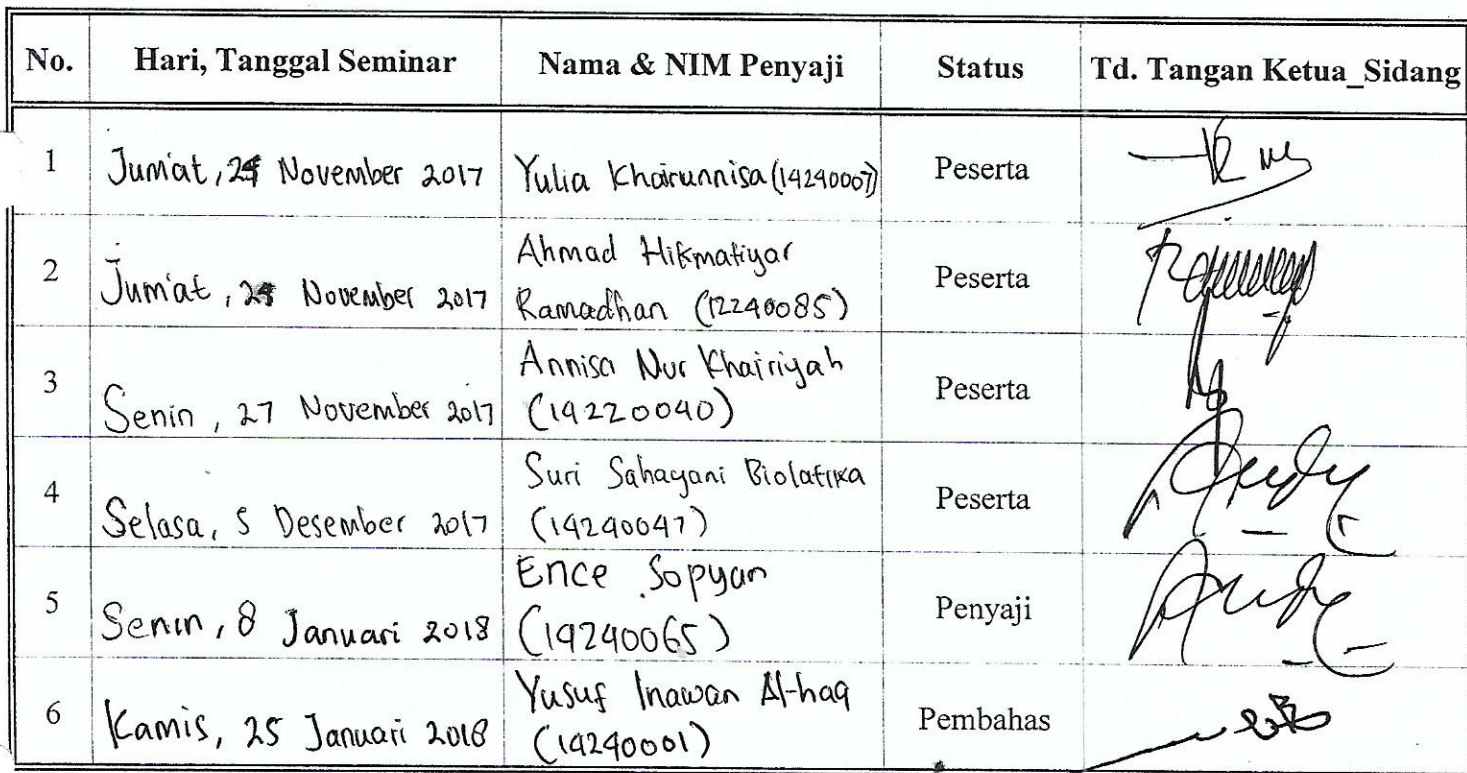 No. Hari, Tanggal Seminar Nama & NIM Penyaji Status Td. Tangan Ketua_Sidang
1 Jum'at, 24 November 2017 Yulia Khairunnisa (14240007) Peserta
2 Jum'at, 24 November 2017 Ahmad Hikmatiyar
Ramadhan (12240085) Peserta
3 Senin, 27 November 2017 Annisa Nur Khairiyah
(14220040) Peserta
4 Selasa, 5 Desember 2017 Suri Sahayani Biolatika
(14240047) Peserta
5 Senin, 8 Januari 2018 Ence Sopyan
(14240065) Penyaji
6 Kamis, 25 Januari 2018 Yusuf Inawan Al-haq
(14240001) Pembahas